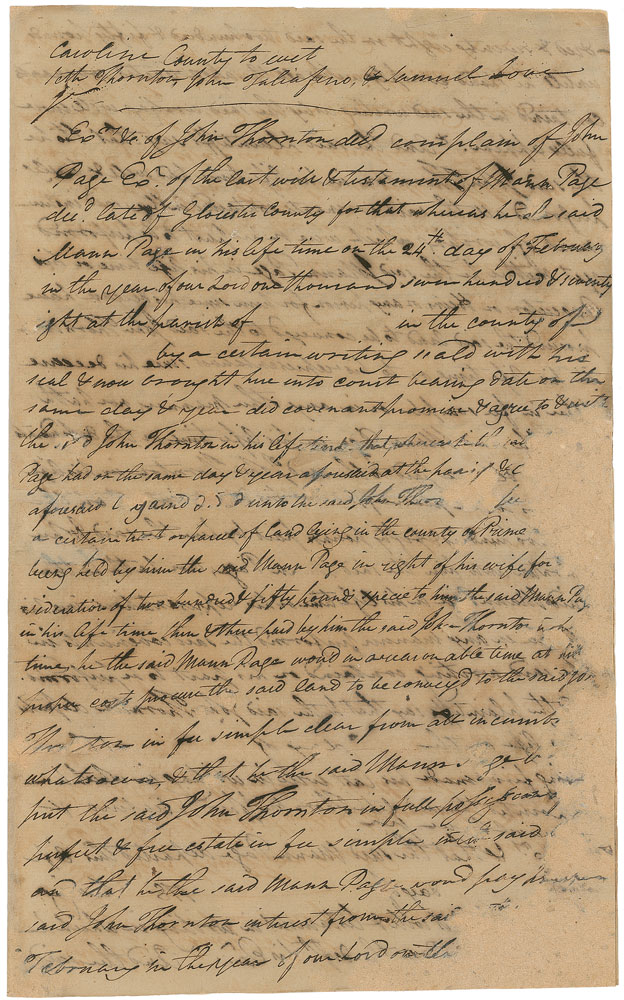 Caroline County to wit
Seth Thornton, John Taliaferro, & Samuel Love
Exrs. &c of John Thornton decd complain of John
Page Exr. of the Last will & testament of Mann Page
decd late of Glocester County for that whereas he the said
Mann Page in his life time on the 24th. day of February
in the year of our Lord one thousand seven hundred & seventy
ight at the parish of in the county of
by a certain writing seald with his
seal & now brought here into court bearing date on the
same day & year did covenant promise & agree to & with
the said John Thornton in his life time that whereas he the said
Page had on the same day & year aforesaid at the parish &c
aforesaid unto the said John Thor
a certain tract or parcel of land lying in the county of Prince
being held by him the said Mann Page in right of his wife for
sideration of two hundred & fifty pounds specie to him the said Mann Page
in his life time then & there paid by him the said John Thornton in his
time, he the said Mann Page would in a reasonable time at his
proper costs procure the said land to be conveyed to the said John
Thornton in fee simple clear from all incumb
whatsoever, & that he the said Mann
put the said John Thornton in full possession
perfect & free estate in fee simple in said
and that he the said Mann Page would pay
said John Thornton interest from the said
February in the year of our Lord on th